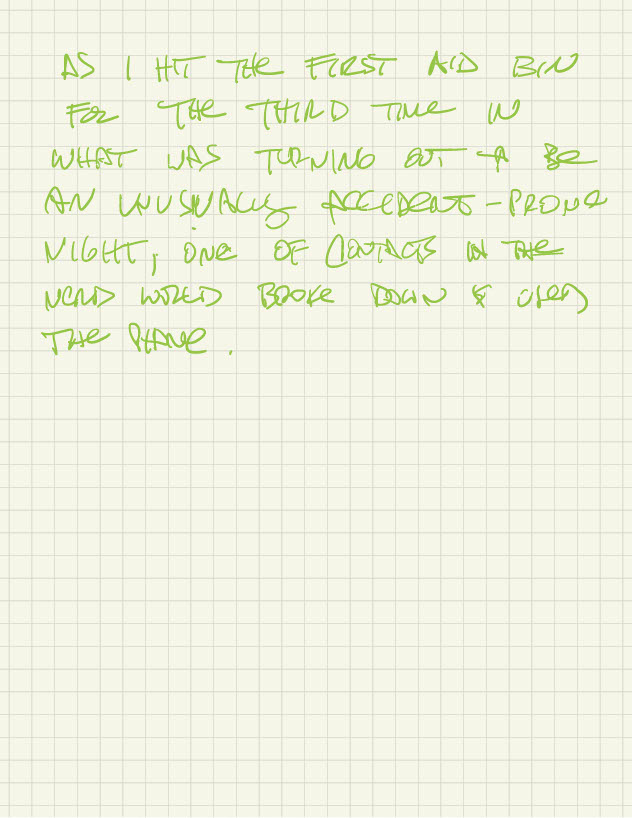 AS I HIT THE FIRST AID BIN
FOR THE THIRD TIME IN
WHAT WAS TURNING OUT TO BE
AN UNUSUALLY ACCIDENT-PRONE
NIGHT, ONE OF CONTACTS IN THE
WORLD BROKE DOWN & USED
THE PHONE.